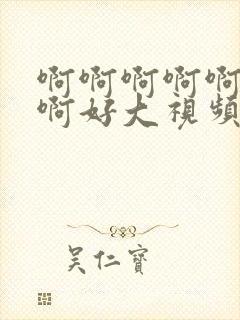 啊啊啊啊啊
啊好大視頻
吴仁寶